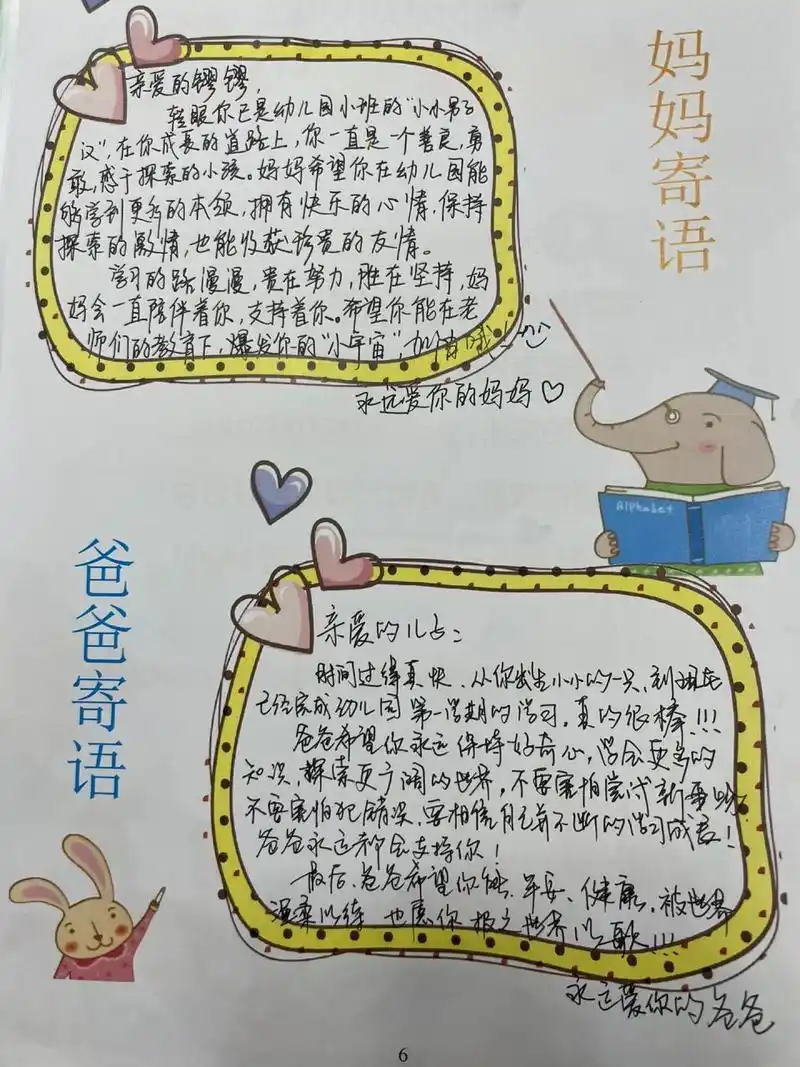 妈妈寄语
亲爱的镠镠,
转眼你已是幼儿园小班的“小小男子
汉”,在你成长的道路上,你一直是一个善良,勇
敢,感于探索的小孩。妈妈希望你在幼儿园能
够学到更多的本领,拥有快乐的心情,保持
探索的激情,也能收获珍贵的友情。
学习的路漫漫,贵在努力,胜在坚持,妈
妈会一直陪伴着你,支持着你。希望你能在老
师们的教育下,爆发你的“小宇宙”,加油哦!
永远爱你的妈妈♡
Alphabet
爸爸寄语
亲爱的儿子:
时间过得真快,从你出生小小的一只,到现在
已经完成幼儿园第一学期的学习,真的很棒!!!
爸爸希望你永远保持好奇心,学会更多的
知识,探索更广阔的世界,不要害怕尝试新事物,
不要害怕犯错误,要相信自己并不断的学习成长!
爸爸永远都会支持你!
最后,爸爸希望你能平安、健康,被世界
温柔以待,也愿你报之世界以歌!!!
永远爱你的爸爸
6